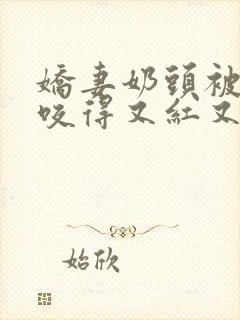 嬌妻奶頭被
咬得又紅又
始欣